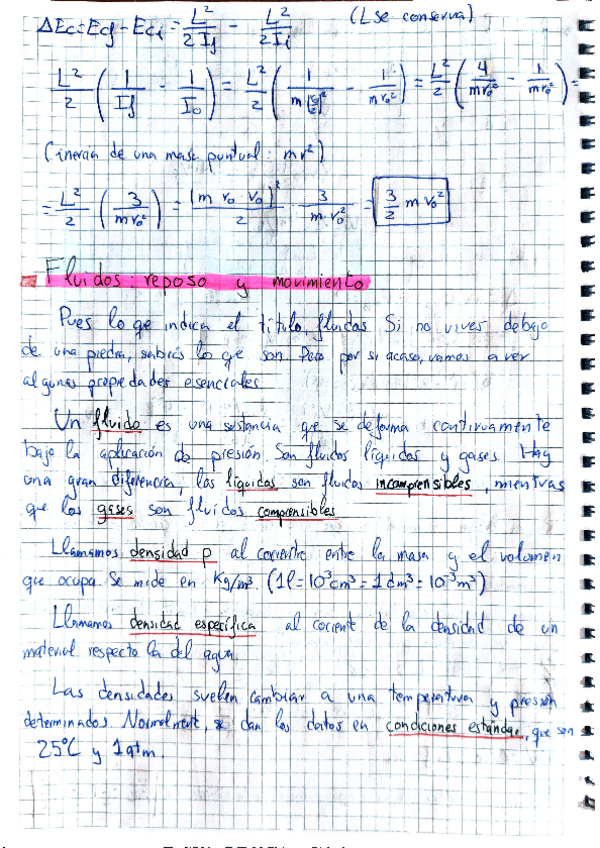 ΔEc = Ecf - Eci = L²/2If - L²/2Ii (L se conserva)
L²/2 (1/If - 1/Io) = L²/2 (1/m(ro/2)² - 1/mro²) = L²/2 (4/mro² - 1/mro²) =
(inercia de una masa puntual: mr²)
= L²/2 (3/mro²) = (m ro vo)²/2 · 3/m ro² = 3/2 m vo²
Fluidos: reposo y movimiento
Pues lo qe indica el título, fluidos. Si no vives debajo
de una piedra, sabrás lo qe son. Pero por si acaso, vamos a ver
algunas propiedades esenciales
Un fluido es una sustancia que se deforma continuamente
bajo la aplicación de presión. Son fluidos líquidos y gases. Hay
una gran diferencia, los líquidos son fluidos incomprensibles, mientras
que los gases son fluidos comprensibles
Llamamos densidad ρ al cociente entre la masa y el volumen
que ocupa. Se mide en Kg/m³. (1l = 10³cm³ = 1dm³ = 10⁻³m³)
Llamamos densidad específica al cociente de la densidad de un
material respecto la del agua.
Las densidades suelen cambiar a una temperatura y presión
determinados. Normalment, se dan los datos en condiciones estándar, que son
25ºC y 1atm.